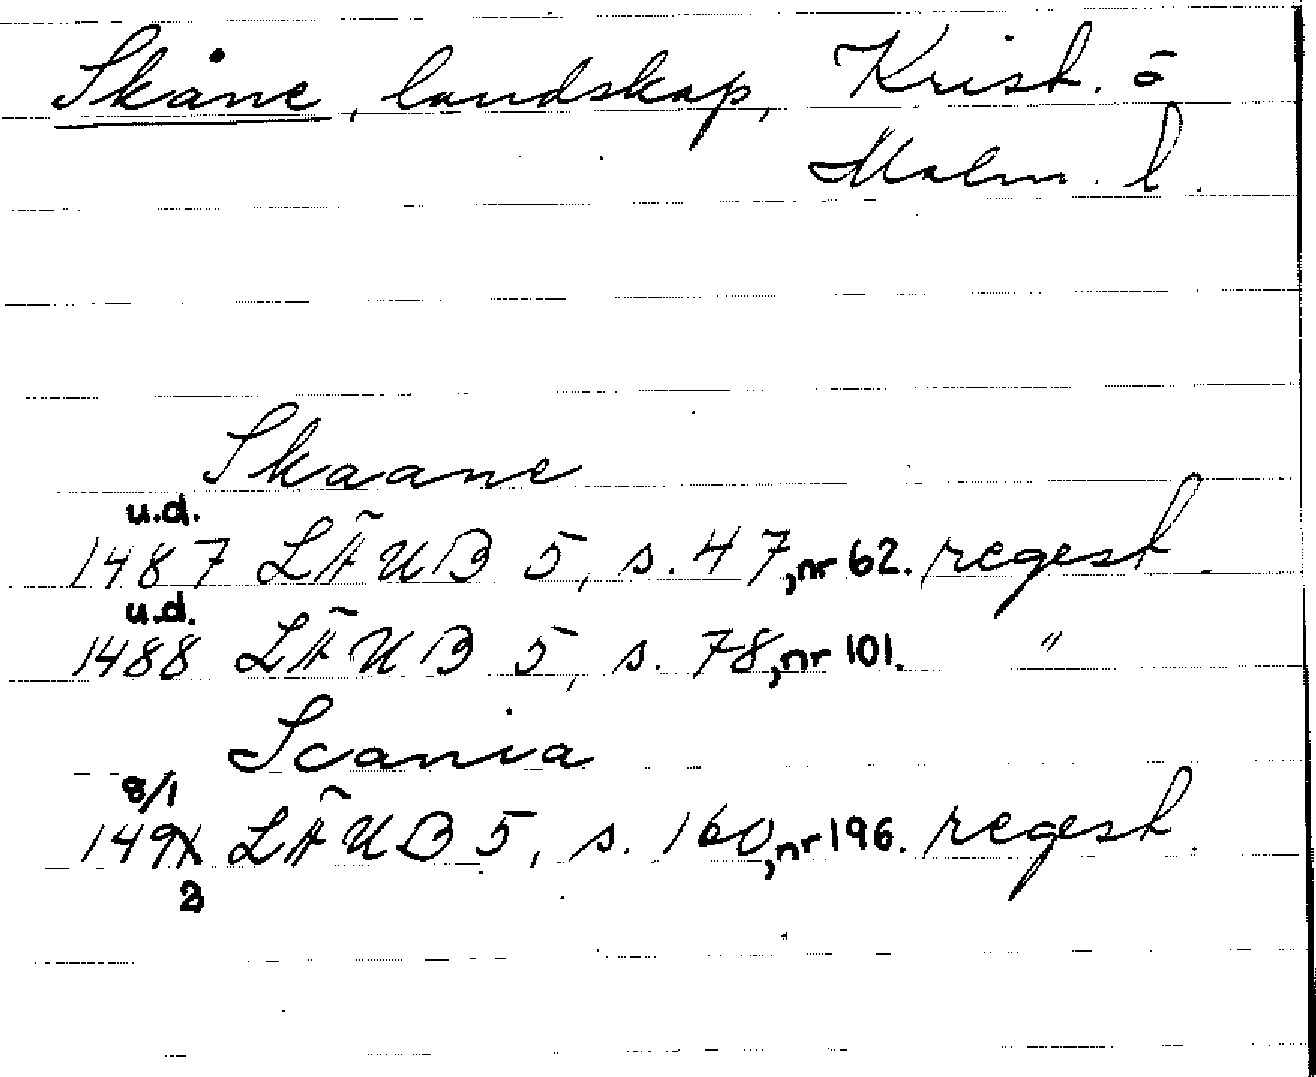 Skåne, landskap, Krist. o
Malm. l.
Skaane
u.d.
1487 LÄUB 5, s. 47, nr 62. regest.
u.d.
1488 LÄUB 5, s. 78, nr 101. "
Scania
8/1
149 LÄUB 5, s. 160, nr 196. regest.
3